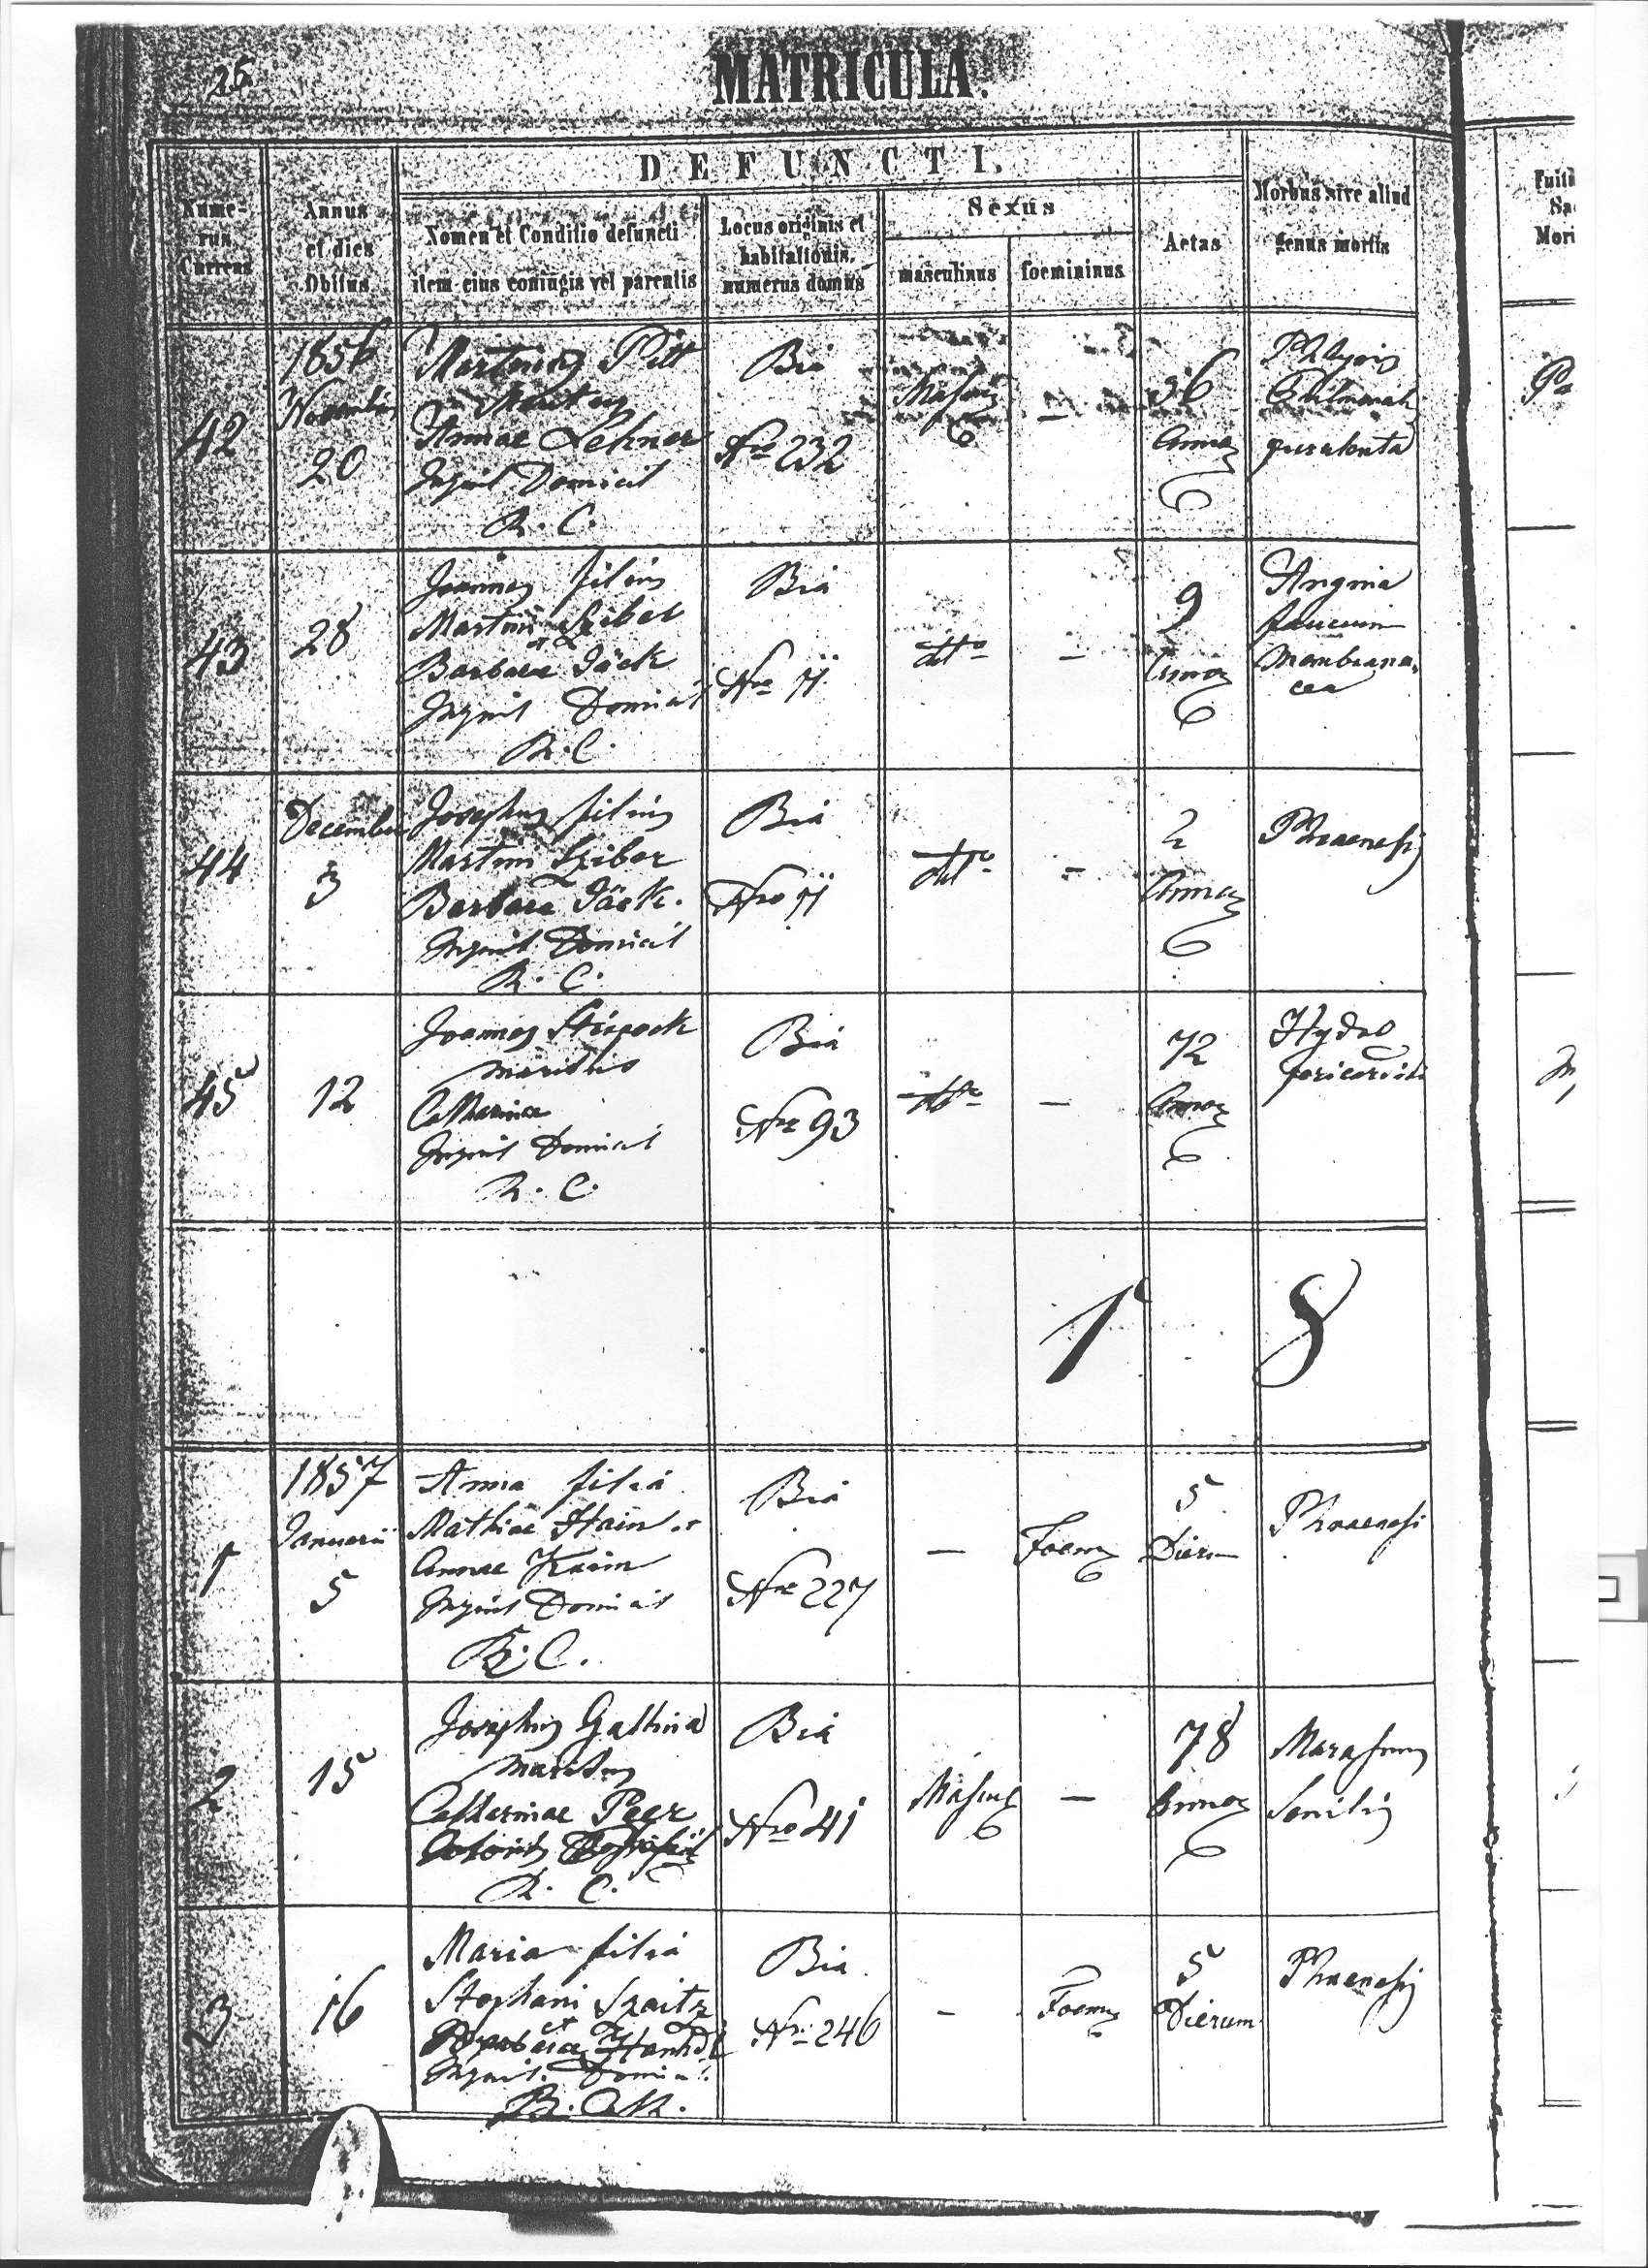 26
MATRICULA.
DEFUNCTI.
Nume-
rus
Currens
Annus
et dies
Obitus
Nomen et Conditio defuncti
item eius coniugis vel parentis
Locus originis et
habitationis,
numerus domus
Sexus
masculinus
foemininus
Aetas
Morbus sive aliud
genus mortis
42
1856
Novembris
20
Martinus Pitt
Maritus
Annae Lehner
Inquil Domicil
R. C.
Bia
Nro 232
36
Annor
Phtysis
Pulmonalis
purulenta
43
28
Joannes filius
Martini Sziber
et
Barbara Jäck
Inquil Domicil
R. C.
Bia
Nro 11
dtto
-
9
Annor
Angina
faucium
Membrana-
cea
44
December
3
Josephus filius
Martini Sziber
Barbara Jäck.
Inquil Domicil
R. C.
Bia
Nro 11
dtto
-
2
Annor
Phraenesis
45
12
Joannes
maritus
Catharina
Inquil Domicil
R. C.
Bia
Nro 93
dtto
-
72
Annor
Hydro
pericarditis
18
1
1857
Januarii
5
Anna filia
Mathiae Hain et
Annae
Inquil Domicil
R. C.
Bia
Nro 227
-
Foem
5
Dierum
Phraenesis
2
15
Josephus Gallina
maritus
Catharinae Peer
R. C.
Bia
Nro 41
Mascul
-
78
Annor
Marasmus
Senilis
3
16
Maria filia
Stephani Szaitz
et
Barbara
Inquil. Domicil.
Bia
Nro 246
-
Foem
5
Dierum
Phraenesis